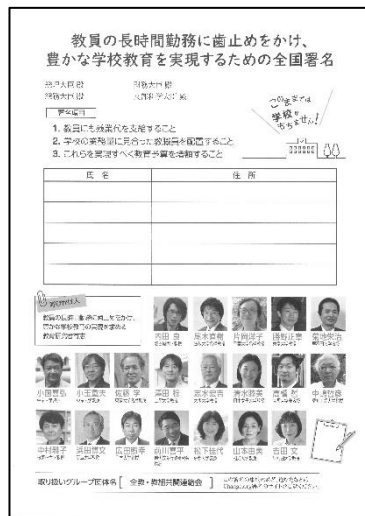 教員の長時間勤務に歯止めをかけ、
豊かな学校教育を実現するための全国署名
総理大臣 殿
財務大臣 殿
総務大臣 殿
文部科学大臣 殿
署名項目
1. 教員にも残業代を支給すること
2. 学校の業務量に見合った教職員を配置すること
3. これらを実現すべく教育予算を増額すること
このままでは
学校が
もちません!
氏 名
住 所
教員の長時間勤務に歯止めをかけ、
豊かな学校教育の実現を求める
教育研究者有志
内田 良
尾木直樹
片岡洋子
勝野正章
菊池栄治
小国喜弘
小玉重夫
佐藤 学
澤田 稔
志水宏吉
清水睦美
髙橋 哲
中嶋哲彦
中村雅子
浜田博文
広田照幸
前川喜平
松下佳代
山本由美
吉田 文
取り扱いグループ団体名 [ 全教・教組共闘連絡会 ]